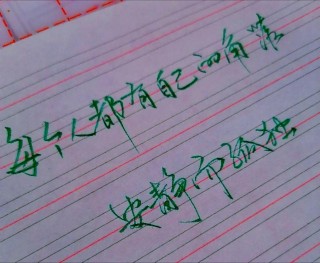 每个人都有自己的角落
安静而孤独